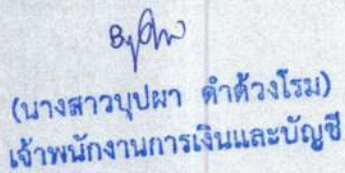 (นางสาวบุปผา ดำด้วงโรม)
เจ้าพนักงานการเงินและบัญชี